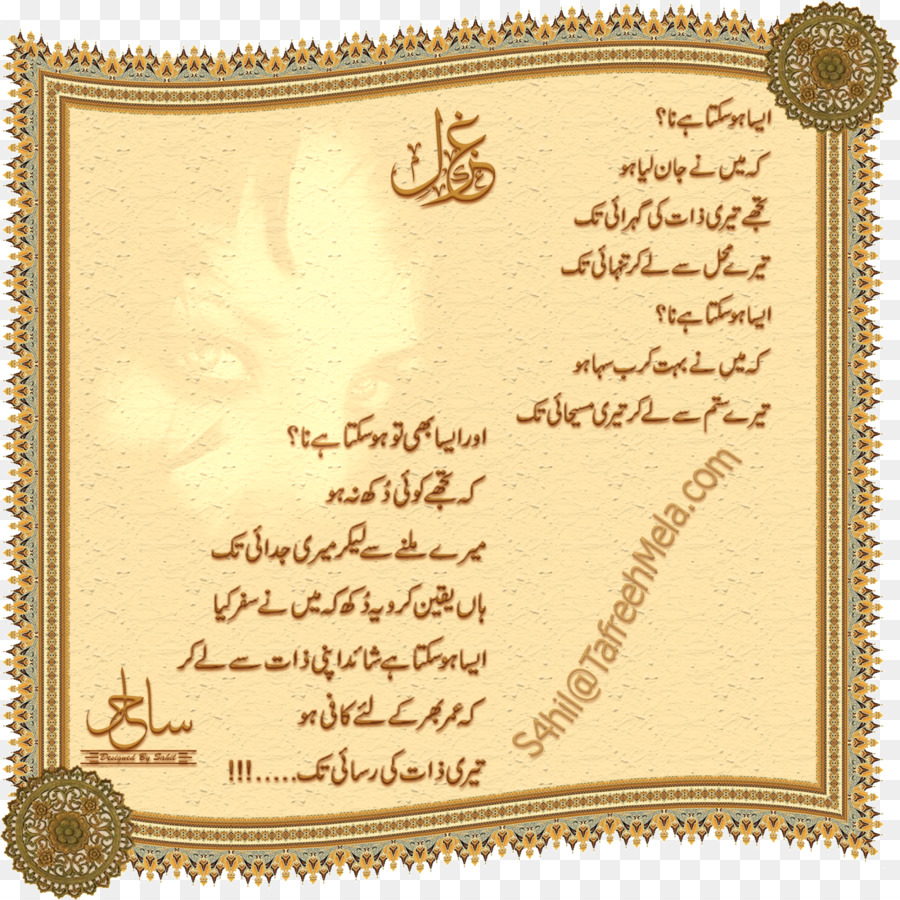 غزل
ایسا ہو سکتا ہے نا؟
کہ میں نے جان لیا ہو
تجھے تیری ذات کی گہرائی تک
تیرے محل سے لے کر تنہائی تک
ایسا ہو سکتا ہے نا؟
کہ میں نے بہت کرب سہا ہو
تیرے ستم سے لے کر تیری مسیحائی تک
اور ایسا بھی تو ہو سکتا ہے نا؟
کہ تجھے کوئی دُکھ نہ ہو
میرے ملنے سے لیکر میری جدائی تک
ہاں یقین کرو یہ دُکھ کہ میں نے سفر کیا
ایسا ہو سکتا ہے شائد اپنی ذات سے لے کر
کہ عمر بھر کے لئے کافی ہو
تیری ذات کی رسائی تک.....!!!
S4hil@TafreehMela.com
ساحر
Designed By Sahil